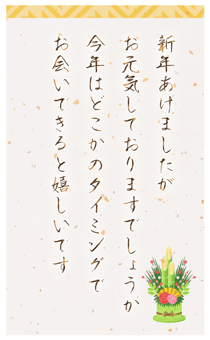 新年あけましたが
お元気しておりますでしょうか
今年はどこかのタイミングで
お会いできると嬉しいです